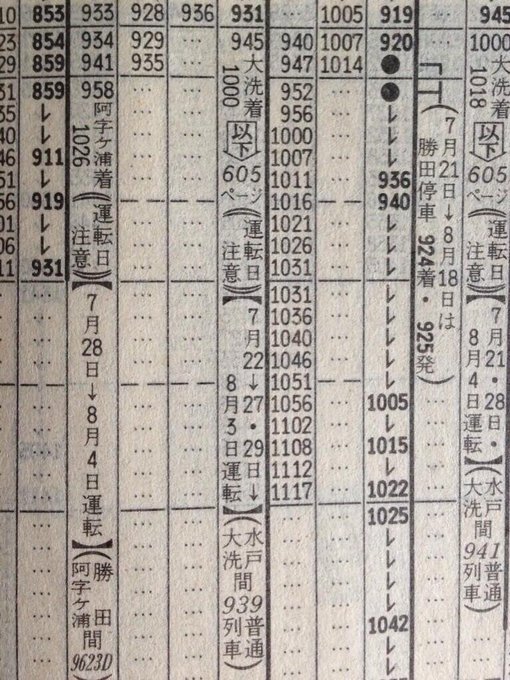 853
854
859
859
911
919
931
933
934
941
958
阿字ケ浦着
1026
(運転日注意)
【7月28日→8月4日運転】
(勝田阿字ケ浦間9623D)
928
929
935
936
931
945
大洗着
1000
以下
605ページ
(運転日注意)
【7月22→27・29日→8月3日運転】
(水戸大洗間939普通列車)
940
947
952
956
1000
1007
1011
1016
1021
1026
1031
1031
1036
1040
1046
1051
1056
1102
1108
1112
1117
1005
1007
1014
919
920
●
●
936
940
1005
1015
1022
1025
1042
(7月21日→8月18日は
勝田停車 924着・925発)
945
1000
大洗着
1018
以下
605ページ
(運転日注意)
【7月21・28日・8月4日運転】
(水戸大洗間941普通列車)